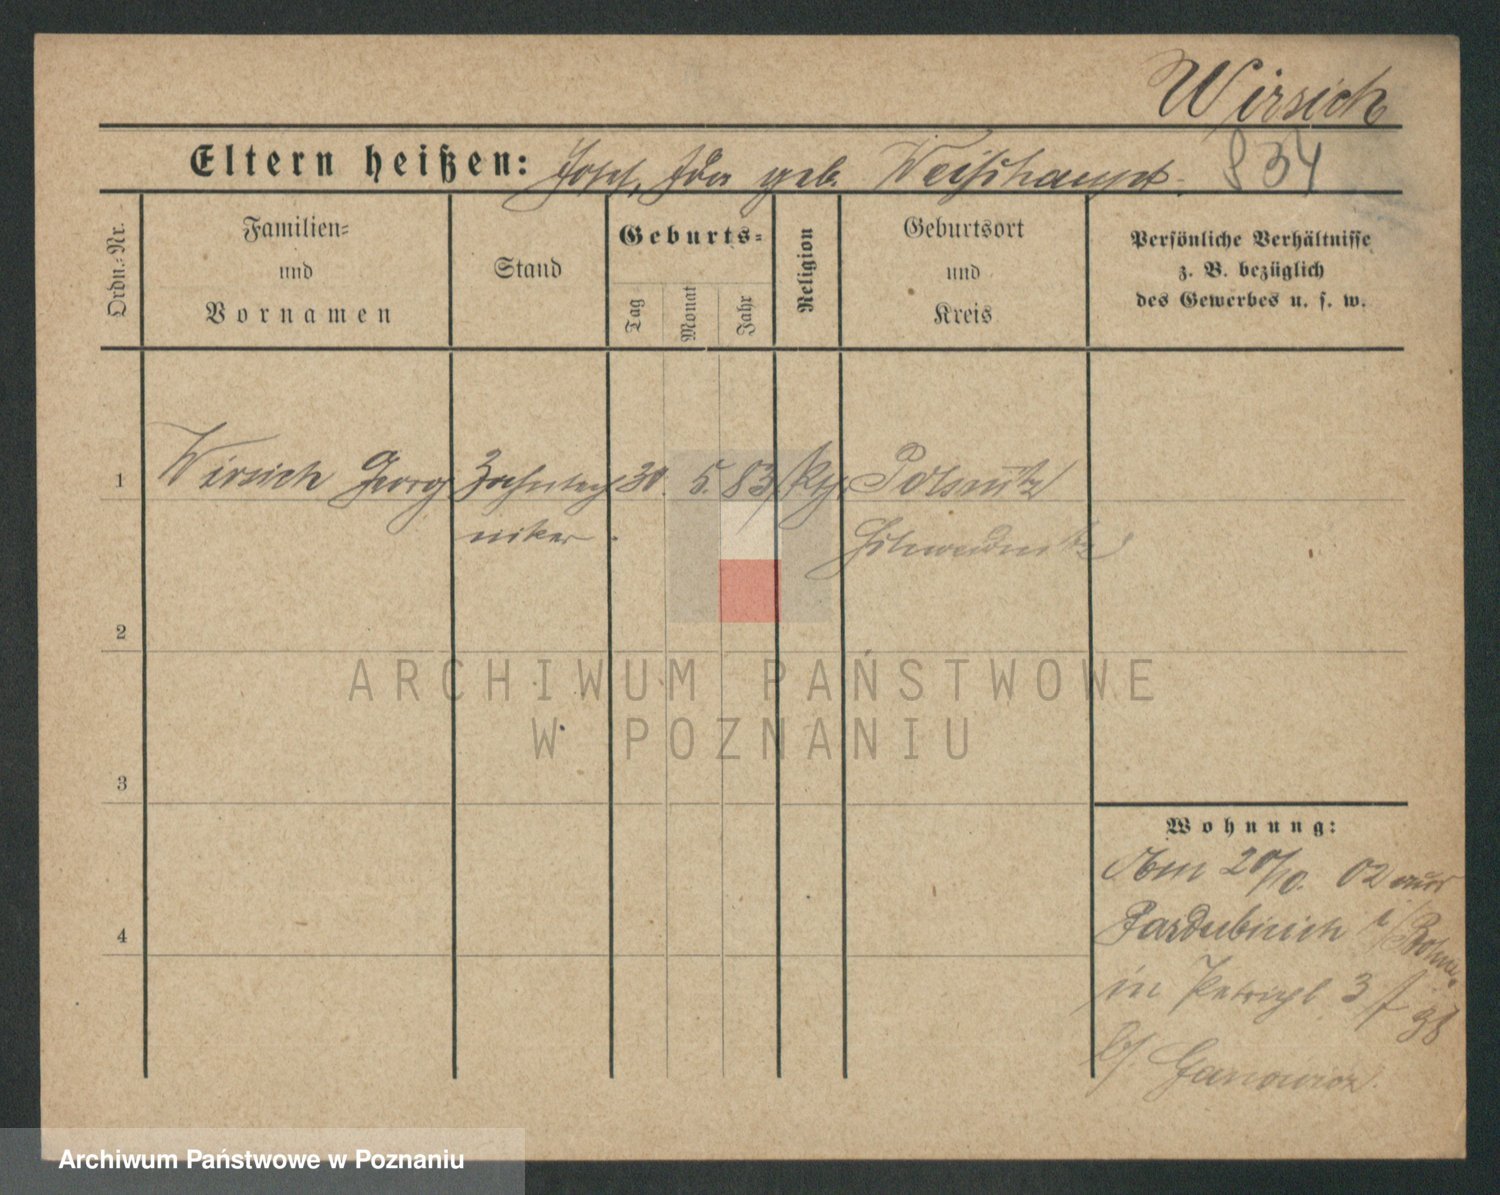 Wirsich
834
Eltern heißen: Josef, Ida geb. Weißhaupt.
Ordn.-Nr.
Familien-
und
Vornamen
Stand
Geburts-
Tag
Monat
Jahr
Religion
Geburtsort
und
Kreis
Persönliche Verhältnisse
z. B. bezüglich
des Gewerbes u. s. w.
1 Wirsich Georg Zahntech 30. 5. 83 Polsnitz
niker. Schweidnitz
2
3
4
Wohnung:
Am 20/10. 02 aus
Pardubitz i/Böhm.
in 3
b/
ARCHIWUM PAŃSTWOWE
W POZNANIU
Archiwum Państwowe w Poznaniu